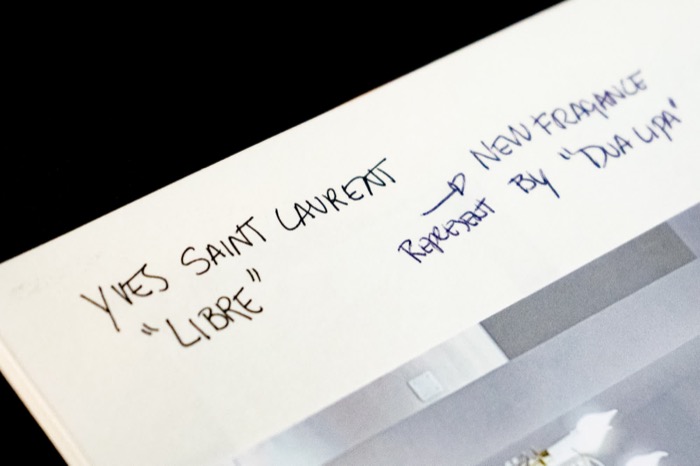 YVES SAINT LAURENT
"LIBRE"
→ NEW FRAGANCE
REPRESENT BY "DUA LIPA"